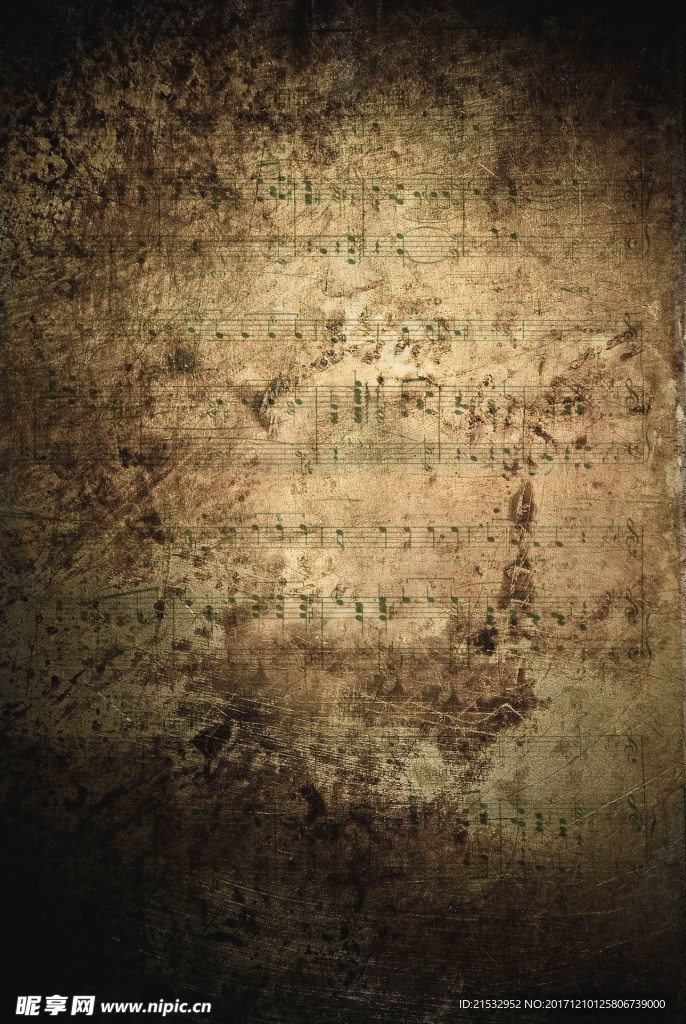 昵享网 www.nipic.cn
ID:21532952 NO:20171210125806739000